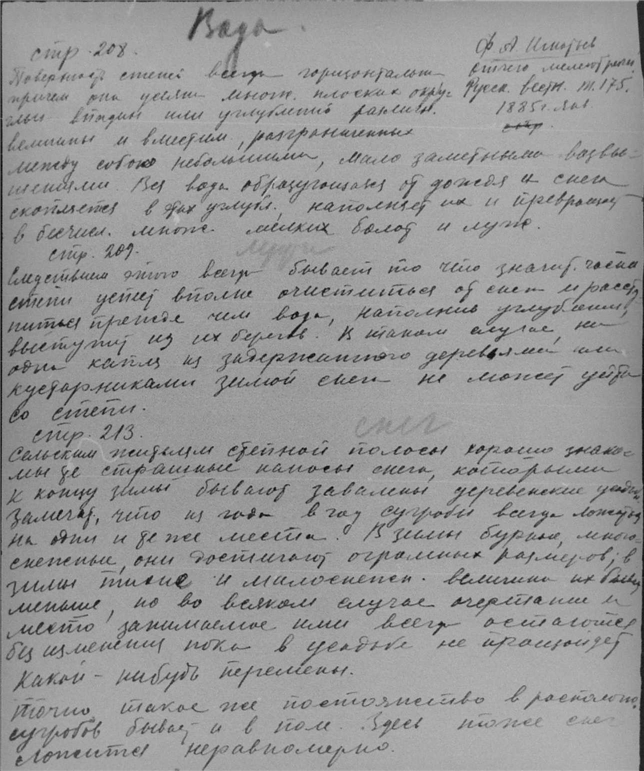 Вода.
стр. 208.
Ф А
Отчего
Русск. вестн. т. 175.
1885 г. Янв
Поверхность степей всегда горизонтальна
причем она усеяна множ. плоских округ-
лых впадин или углублений различн.
величины и вместим., разграниченных
между собою небольшими, мало заметными возвы-
шениями. Вся вода образующаяся от дождя и снега
скопляется в этих углубл., наполняет их и превращает
в бесчисл. множ. мелких болот и луж.
стр. 209.
Следствием этого всегда бывает то что значит. часть
степи успеет вполне очиститься от снега и
прежде чем вода, наполнив углубления,
выступит из их берегов. В таком случае, ни
одна капля из задержанного деревьями или
кустарниками зимой снега не может уйти
со степи.
снег
стр. 213.
Сельским жителям степной полосы хорошо знако-
мы те страшные наносы снега, которыми
к концу зимы бывают завалены деревенские
Замечат, что из года в год сугробы всегда
на одни и те же места. В зимы бурные, много-
снежные, они достигают огромных размеров; в
зимы тихие и малоснежн. величина их
меньше, но во всяком случае очертание и
место занимаемое ими всегда остаются
без изменения пока в усадьбе не произойдет
какой-нибудь перемены.
Точно такое же постоянство в располож.
сугробов бывает и в поле. Здесь тоже снег
ложится неравномерно.